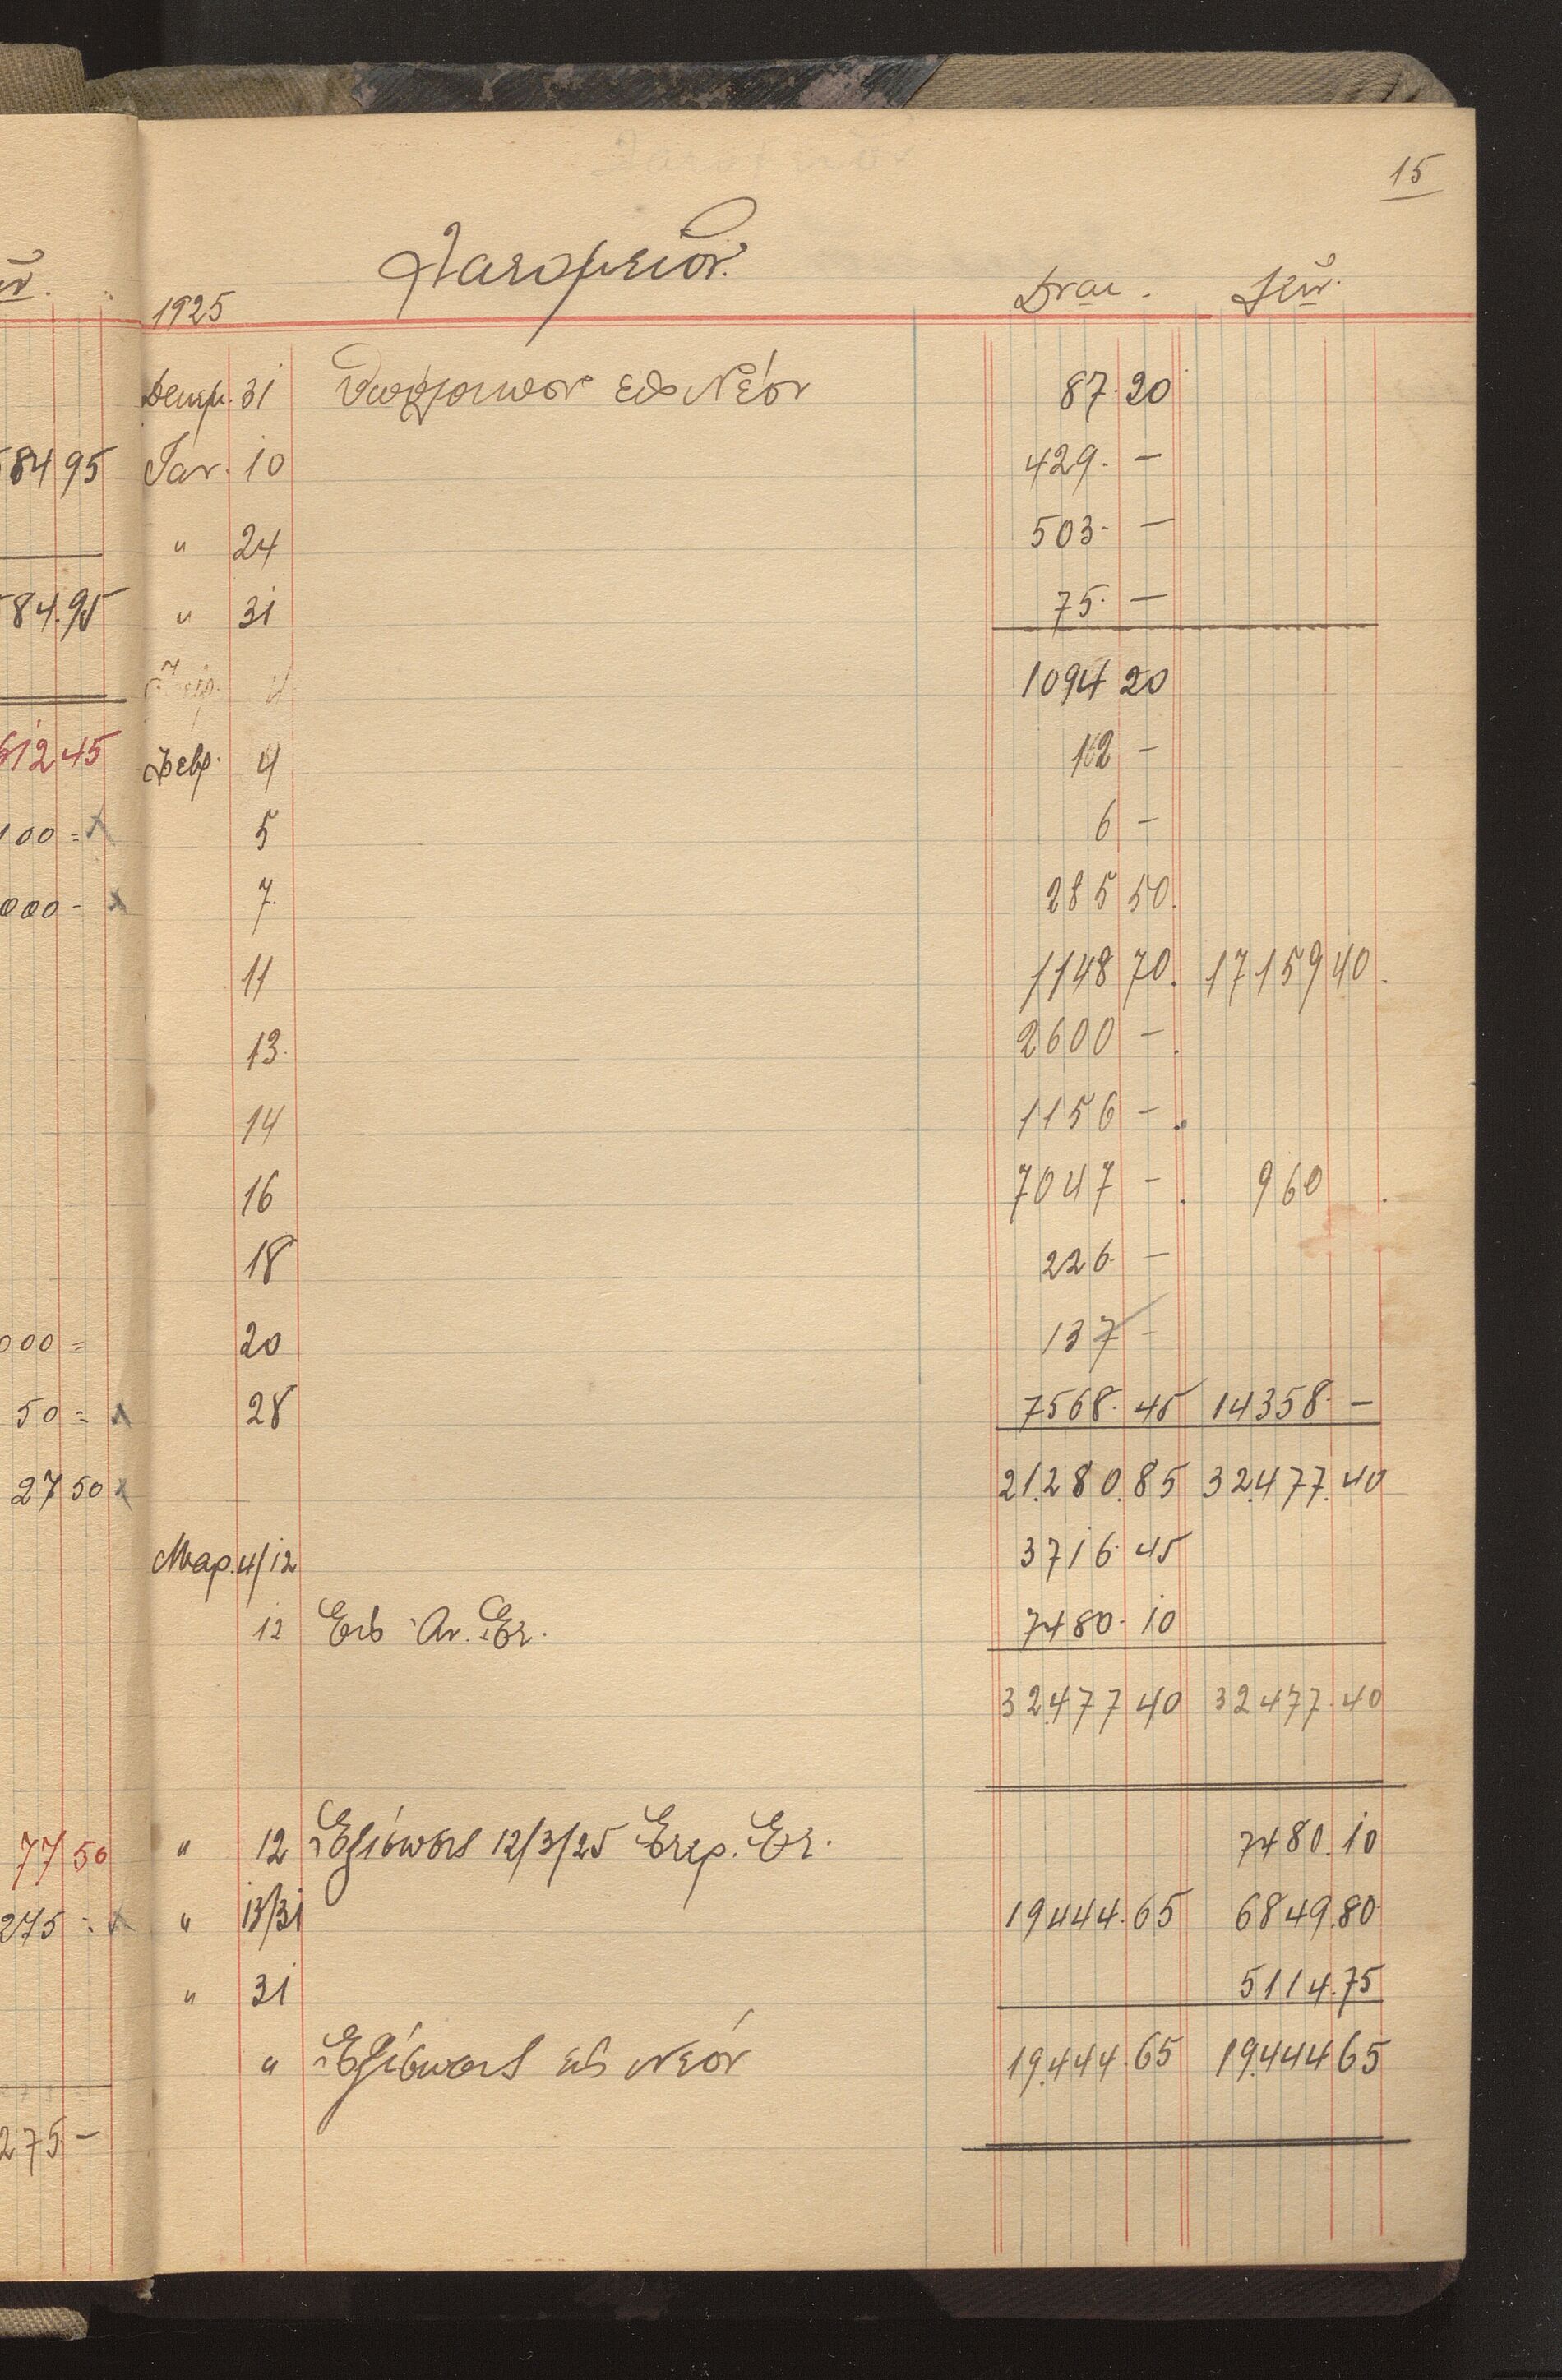 15
1925
Δεκεμ. 31 εἰς Νέον 87.20
Ἰαν. 10 429. —
" 24 503. —
" 31 75. —
1094 20
Φεβρ. 4 12 —
5 6 —
7. 285 50.
11 1148 70. 17159 40.
13. 2600 — .
14 1156 — .
16 7047 — . 960 .
18 226 —
20 137 —
28 7568. 45 14358. —
21.280.85 32.477.40
Μαρ. 4/12 3716. 45
12 Εἰς Ἀν. Ἐν. 7480. 10
32.477 40 32477.40
" 12 Ἐξίσωσις 12/3/25 Ἐνερ. Ἐν. 7480.10
" 13/31 19444.65 6849.80
" 31 5114.75
" Ἐξίσωσις εἰς νέον 19.444.65 19.444 65
84 95
84.95
612 45
100 = x
000 - x
000 =
50 = x
27 50 x
77 50
275 = x
275 —